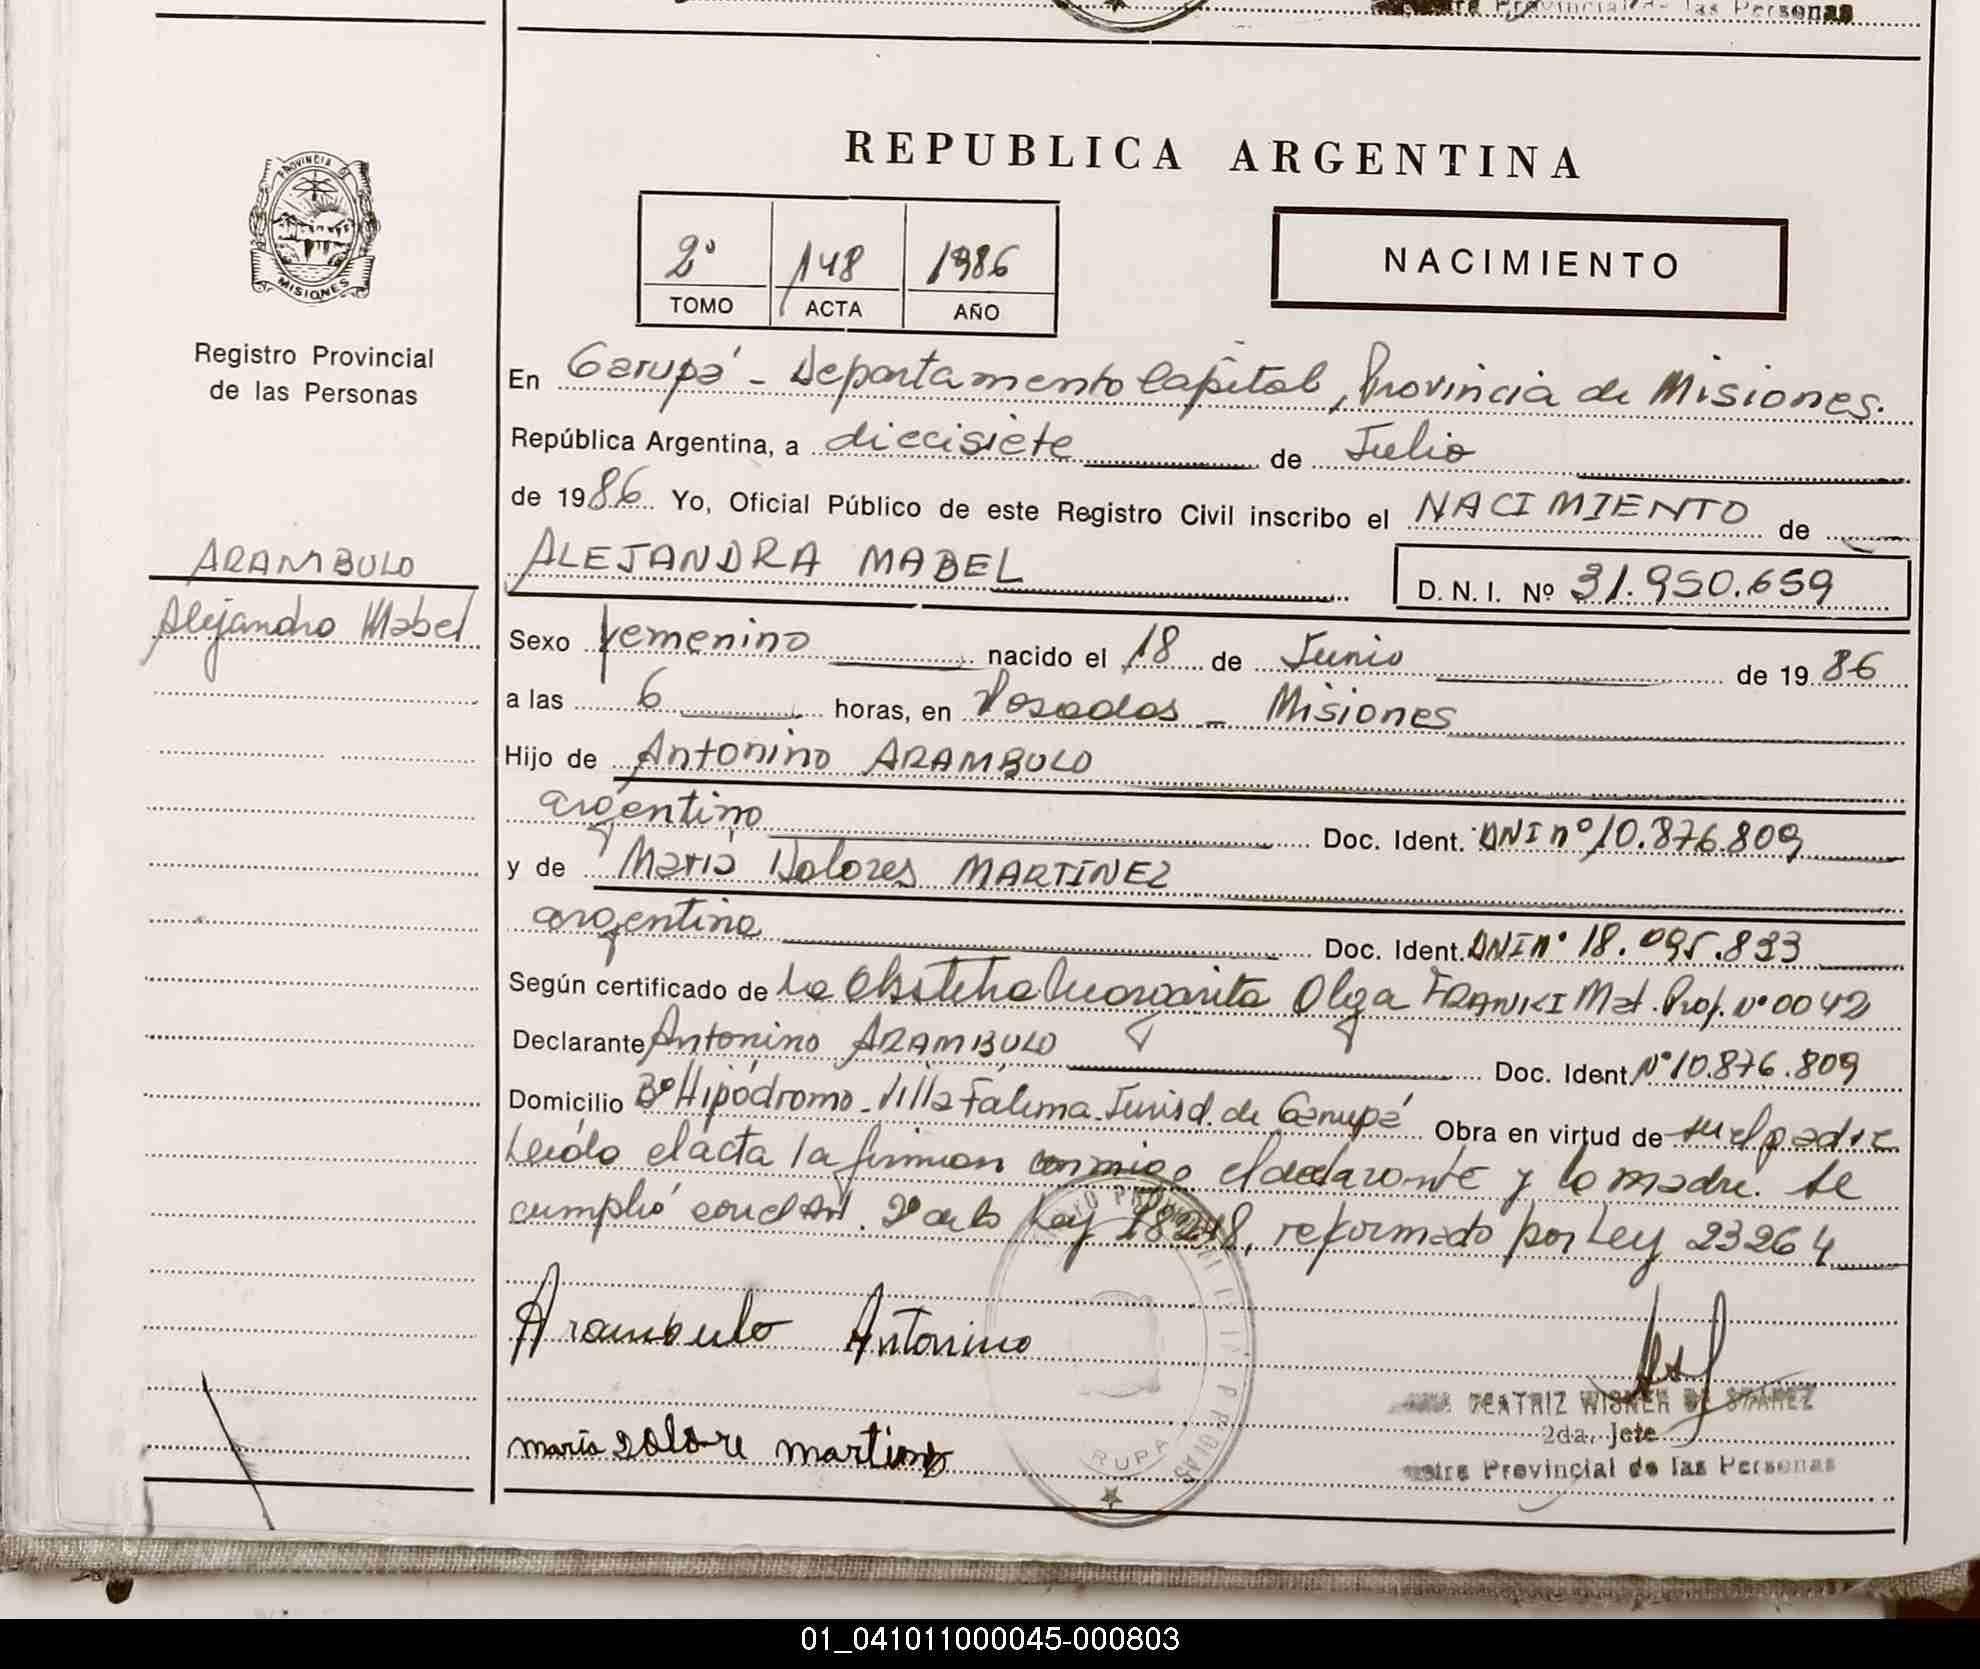 Registro Provincial de las Personas
REPUBLICA ARGENTINA
2º 148 1986
TOMO ACTA AÑO
NACIMIENTO
PROVINCIA DE
MISIONES
Registro Provincial
de las Personas
ARAMBULO
Alejandra Mabel
En Garupá - Departamento Capital, Provincia de Misiones.
República Argentina, a diecisiete de Julio
de 1986 Yo, Oficial Público de este Registro Civil inscribo el NACIMIENTO de
ALEJANDRA MABEL D.N.I. Nº 31.950.659
Sexo femenino nacido el 18 de Junio de 1986
a las 6 horas, en Posadas - Misiones
Hijo de Antonino ARAMBULO
argentino Doc. Ident. DNI nº 10.876.809
y de María Dolores MARTINEZ
argentina Doc. Ident. DNI nº 18.095.833
Según certificado de La Obstetra Margarita Olga FRANKI Mat. Prof. Nº 0042
Declarante Antonino ARAMBULO Doc. Ident. Nº 10.876.809
Domicilio Bº Hipódromo - Villa Fátima - Jurisd. de Garupá Obra en virtud de ser el padre
Leída el acta la firman conmigo el declarante y la madre. Se
cumplió con el Art. 2º de la Ley 18248, reformado por Ley 23264
Arambulo Antonino
BEATRIZ WISNER DE SUAREZ
2da. Jefe
maría Dolore martines
Provincial de las Personas
01_041011000045-000803